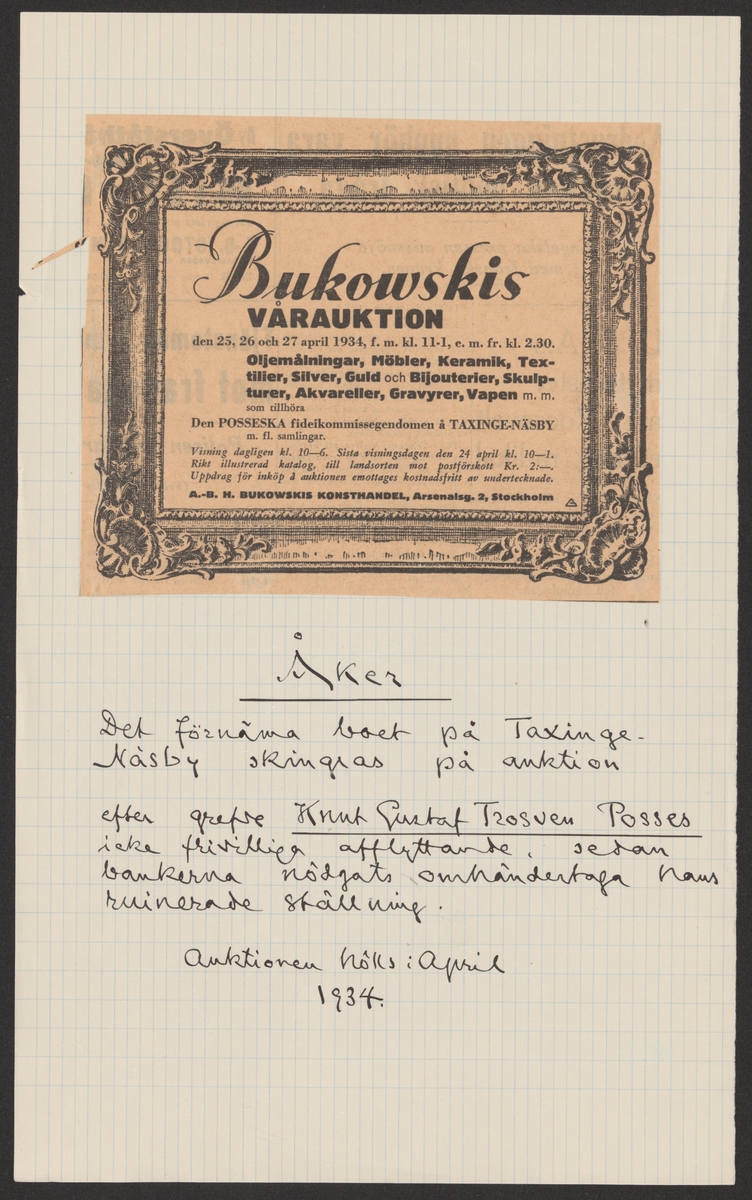 Bukowskis
VÅRAUKTION
den 25, 26 och 27 april 1934, f. m. kl. 11-1, e. m. fr. kl. 2.30.
Oljemålningar, Möbler, Keramik, Tex-
tilier, Silver, Guld och Bijouterier, Skulp-
turer, Akvareller, Gravyrer, Vapen m. m.
som tillhöra
Den POSSESKA fideikommissegendomen å TAXINGE-NÄSBY
m. fl. samlingar.
Visning dagligen kl. 10—6. Sista visningsdagen den 24 april kl. 10—1.
Rikt illustrerad katalog, till landsorten mot postförskott Kr. 2:—.
Uppdrag för inköp å auktionen emottages kostnadsfritt av undertecknade.
A.-B. H. BUKOWSKIS KONSTHANDEL, Arsenalsg. 2, Stockholm
Åker
Det förnäma boet på Taxinge-
Näsby skingras på auktion
efter grefve Knut Gustaf Posses
icke frivilliga afflyttande, sedan
bankerna nödgats omhändertaga hans
ruinerade ställning.
Auktionen hölls i April
1934.